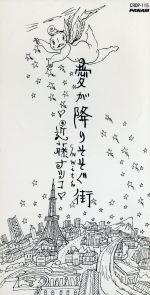 CRDP-115
PANAM
愛が降りそそぐ街
近藤ナツコ